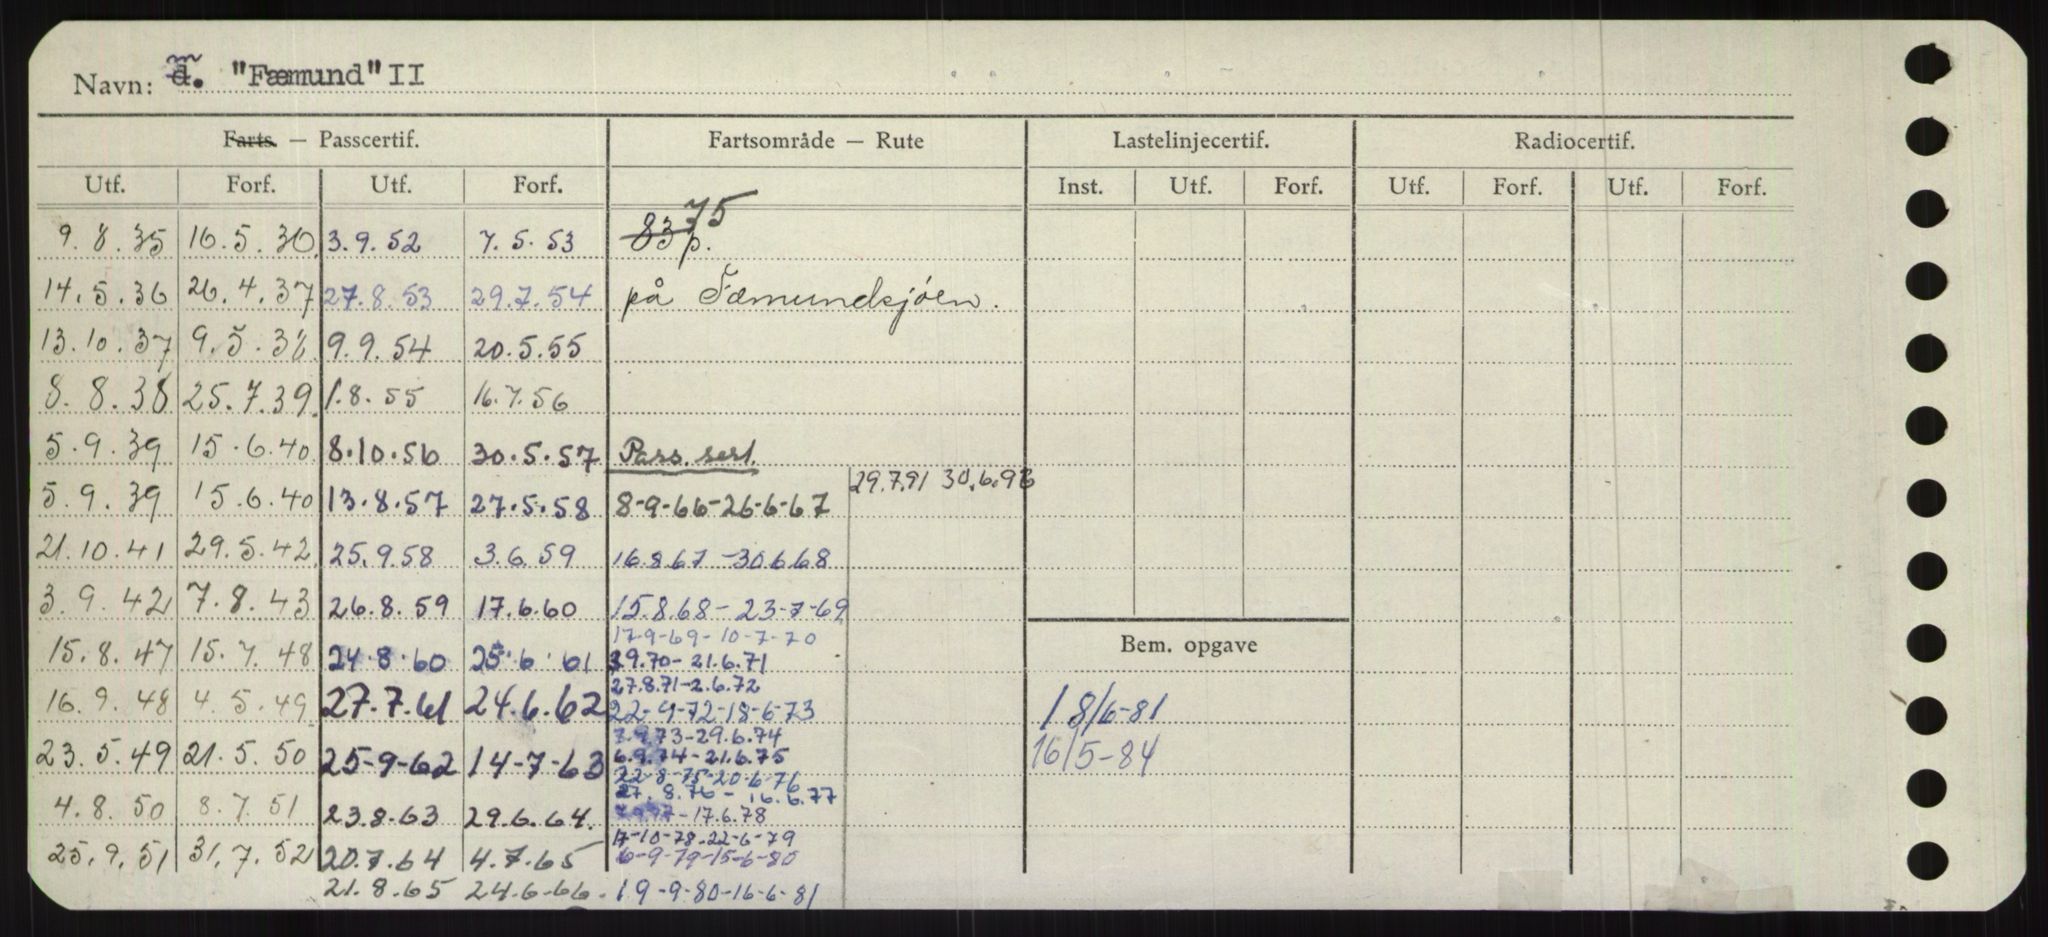 Navn: m̃ d. "Fæmund" II
Farts. — Passcertif. Fartsområde — Rute Lastelinjecertif. Radiocertif.
Utf. Forf. Utf. Forf. Inst. Utf. Forf. Utf. Forf. Utf. Forf.
9.8.35 16.5.36 3.9.52 7.5.53 83 75 p.
14.5.36 26.4.37 27.8.53 29.7.54 på Fæmundsjøen.
13.10.37 9.5.38 9.9.54 20.5.55
8.8.38 25.7.39 1.8.55 16.7.56
5.9.39 15.6.40 8.10.56 30.5.57 Pass. sert.
29.7.91 30.6.93
5.9.39 15.6.40 13.8.57 27.5.58 8-9-66-26-6-67
21.10.41 29.5.42 25.9.58 3.6.59 16.8.67 -30.6.68
3.9.42 7.8.43 26.8.59 17.6.60 15.8.68 - 23-7-69
17-9-69-10-7-70
Bem. opgave
15.8.47 15.7.48 24.8.60 25.6.61 3.9.70- 21.6.71
27.8.71-2.6.72
16.9.48 4.5.49 27.7.61 24.6.62 22-9-72-18-6-73 18/6-81
7.9.73-29.6.74
23.5.49 21.5.50 25-9-62 14-7-63 6.9.74-21.6.75 16/5-84
22-8-75-20-6-76
27.8.76 - 16.6.77
4.8.50 8.7.51 23.8.63 29.6.64. -17.6.78
17-10-78-22-6-79
25.9.51 31.7.52 20.7.64 4.7.65 6-9-79-15-6-80
21.8.65 24.6-66. 19-9-80-16-6-81